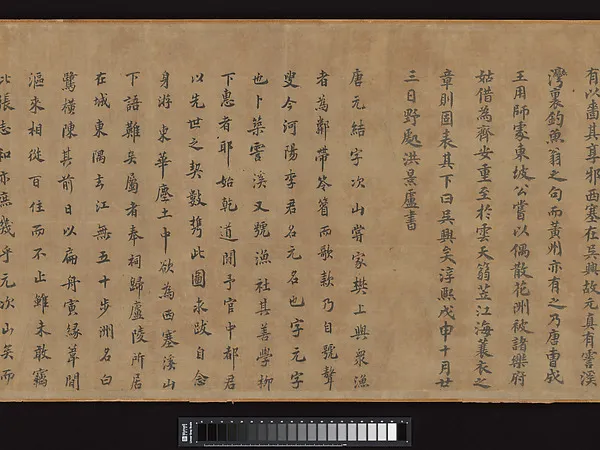 有以嗇其享邪西塞在吳興故元真有霅溪
灣裏釣魚翁之句而黃州亦有之乃唐曹成
王用師處東坡公嘗以偶散花洲被諸樂府
姑借為齊安重至於雲天篛笠江海蓑衣之
章則圖表其下曰吳興矣淳熙戊申十月廿
三日野處洪景盧書
唐元結字次山嘗家樊上與衆漁
者為鄰帶笭箵而歌欵乃自號聱
叟今河陽李君名元名也字元字
也卜築霅溪又號漁社其善學柳
下惠者耶始乾道間予官中都君
以先世之契數攜此圖求跋自念
身游東華塵土中欲為西塞溪山
下語難矣屬者奉祠歸廬陵所居
在城東隅去江無五十步洲名白
鷺橫陳其前日以扁舟寅緣葦間
漚來相從百住而不止雖未敢竊
比張志和亦庶幾乎元次山矣而